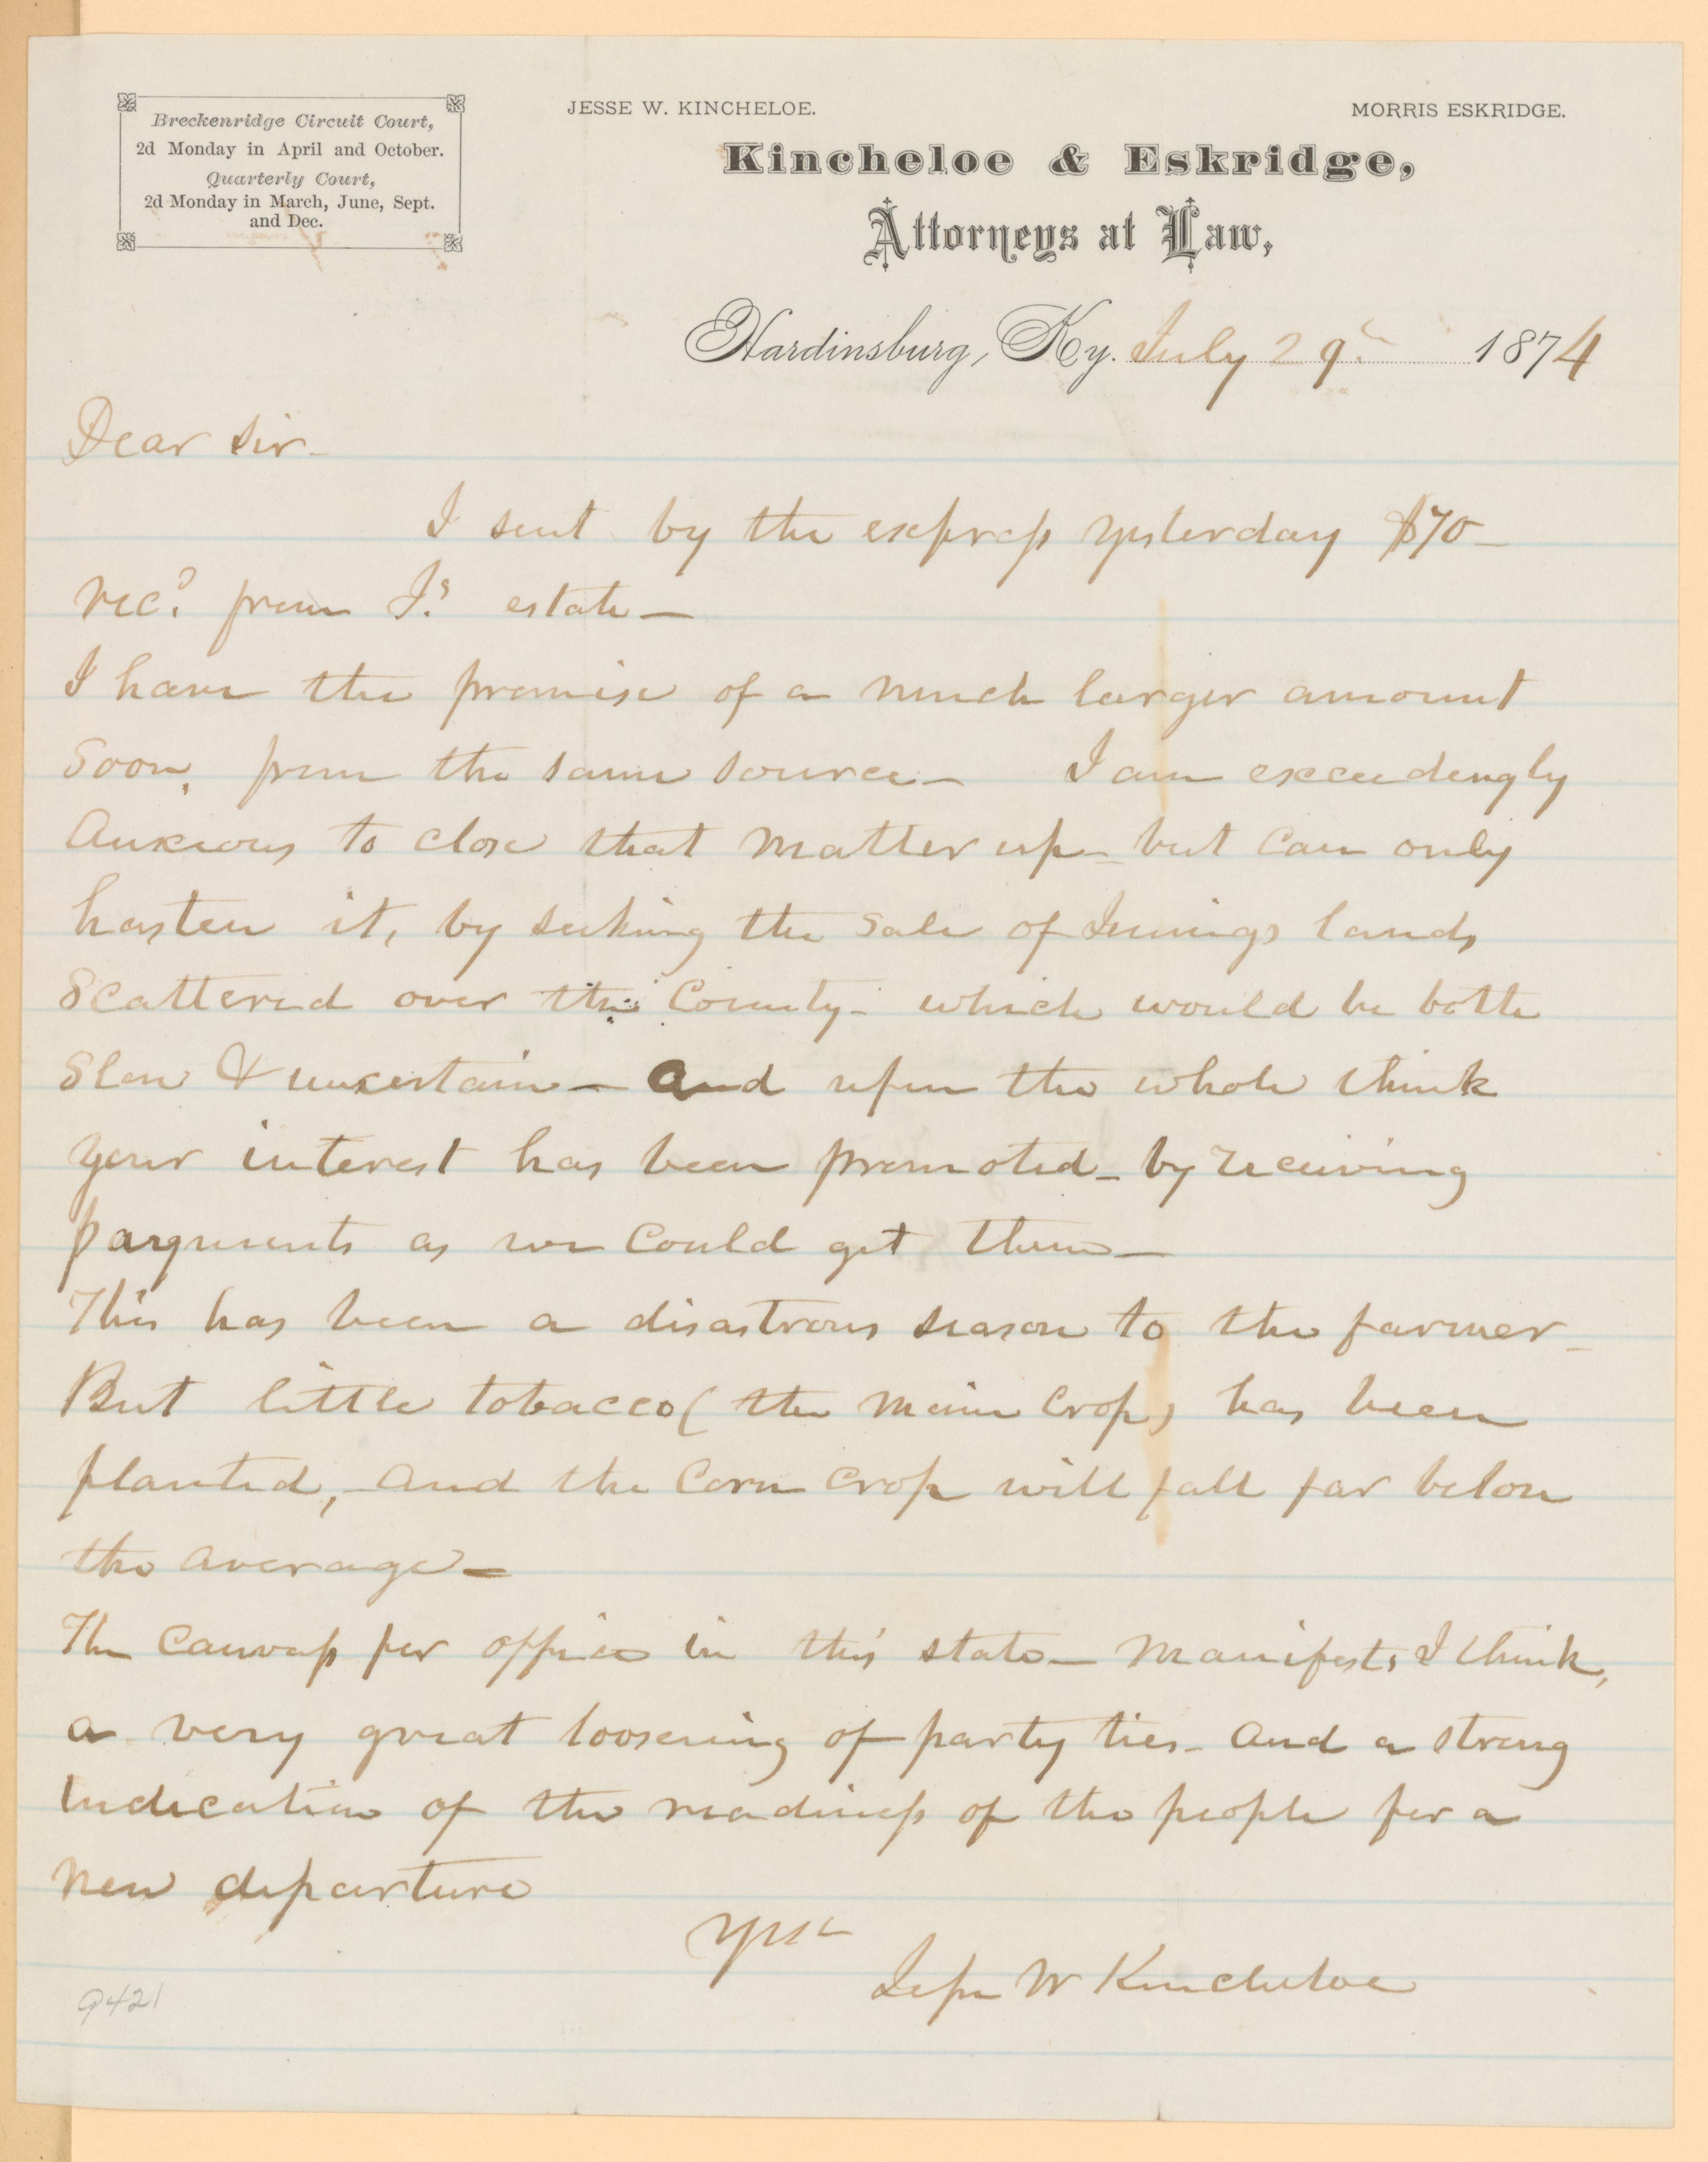 Breckenridge Circuit Court,
2d Monday in April and October.
Quarterly Court,
2d Monday in March, June, Sept.
and Dec.
JESSE W. KINCHELOE. MORRIS ESKRIDGE.
Kincheloe & Eskridge,
Attorneys at Law,
Hardinsburg, Ky. July 29. 1874
Dear Sir-
I sent by the express yesterday $70-
recd. from J.s estate-
I have the promise of a much larger amount
soon, from the same source- I am exceedengly
Anxious to close that matter up- but can only
hasten it, by seeking the sale of Jennings lands
scattered over the County- which would be both
slow & uncertain- And upon the whole think
your interest has been promoted- by receiving
payments as we could get them-
This has been a disastrous season to the farmer-
But little tobacco (the main crop) has been
planted,- and the corn crop will fall far below
the average-
The canvass for office in this state- Manifests I think,
a very great loosening of party ties- and a strong
indication of the readiness of the people for a
new departure
Yrs &c
Jesse W Kincheloe
9421